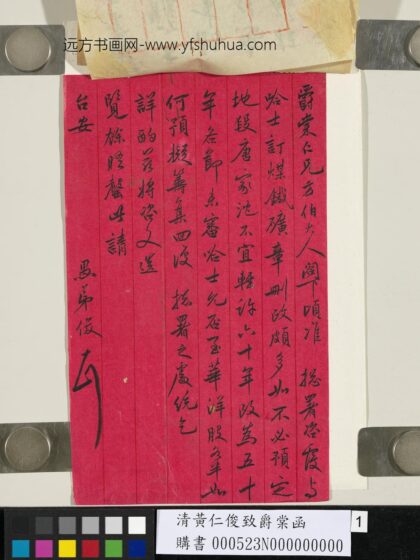 远方书画网-www.yfshuhua.com
爵棠仁兄方伯大人閣下頃准 總署咨覆與
哈士訂煤鐵礦章刪改頗多如不必預定
地段唐家沱不宜輕許六十年改為五十
年各節未審哈士允否至華洋股本如
何預擬籌集 總署之處統乞
詳酌茲將咨文送
覽餘晤罄此請
台安 愚弟俊
清黃仁俊致爵棠函
購書 000523N000000000
1